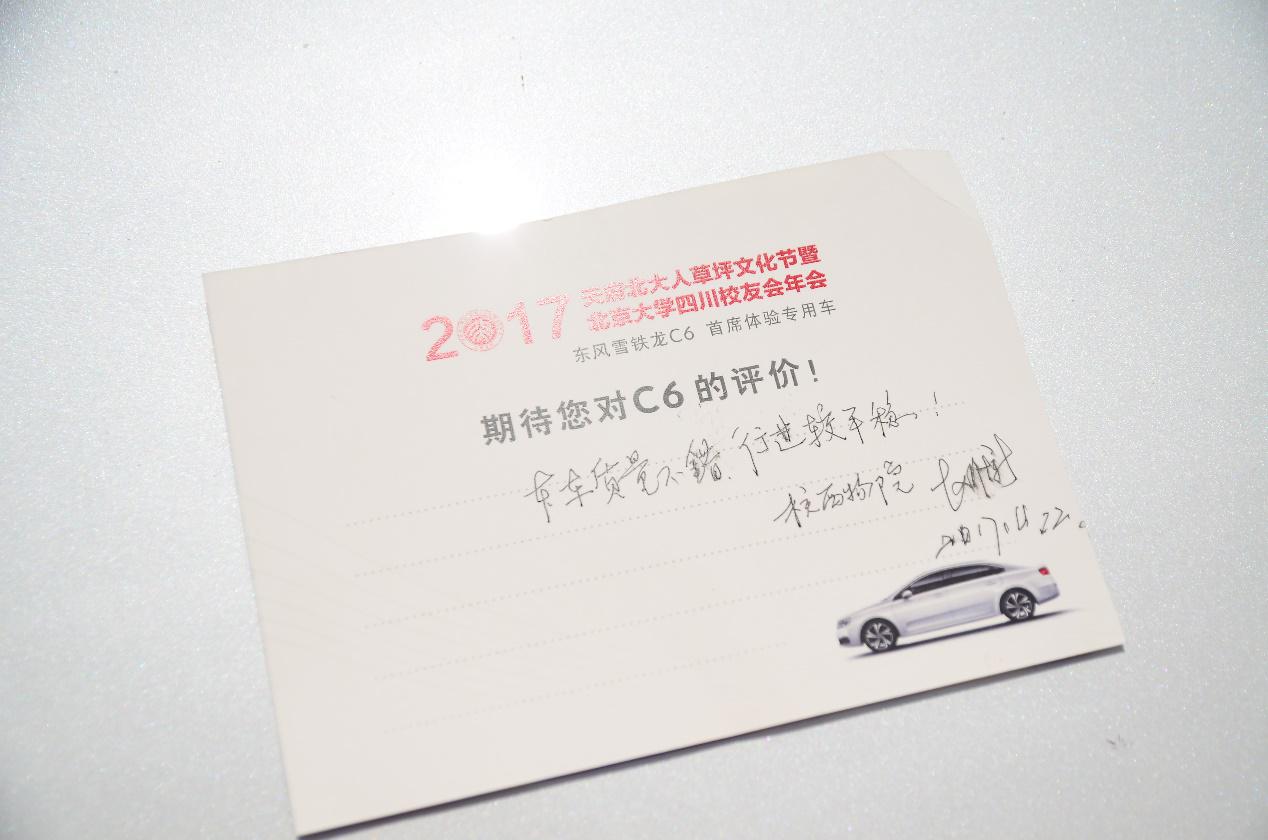 2017 天府北大人草坪文化节暨
北京大学四川校友会年会
东风雪铁龙C6 首席体验专用车
期待您对C6的评价!
车质量不错,行进较平稳!
核西物院
2017.11.22.